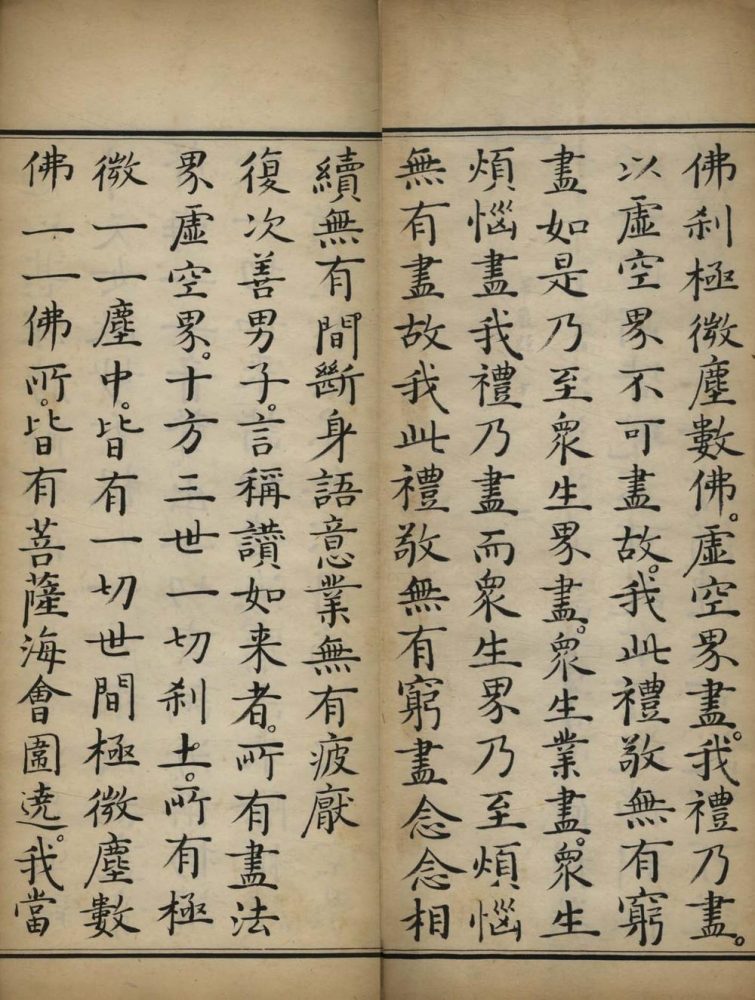 佛刹極微塵數佛。虛空界盡。我禮乃盡。
以虛空界不可盡故。我此禮敬無有窮
盡如是乃至衆生界盡。衆生業盡。衆生
煩惱盡我禮乃盡而衆生界乃至煩惱
無有盡故我此禮敬無有窮盡念念相
續無有間斷身語意業無有疲厭
復次善男子。言稱讚如来者。所有盡法
界虛空界。十方三世一切刹土。所有極
微一一塵中。皆有一切世間極微塵數
佛一一佛所。皆有菩薩海會圍遶。我當